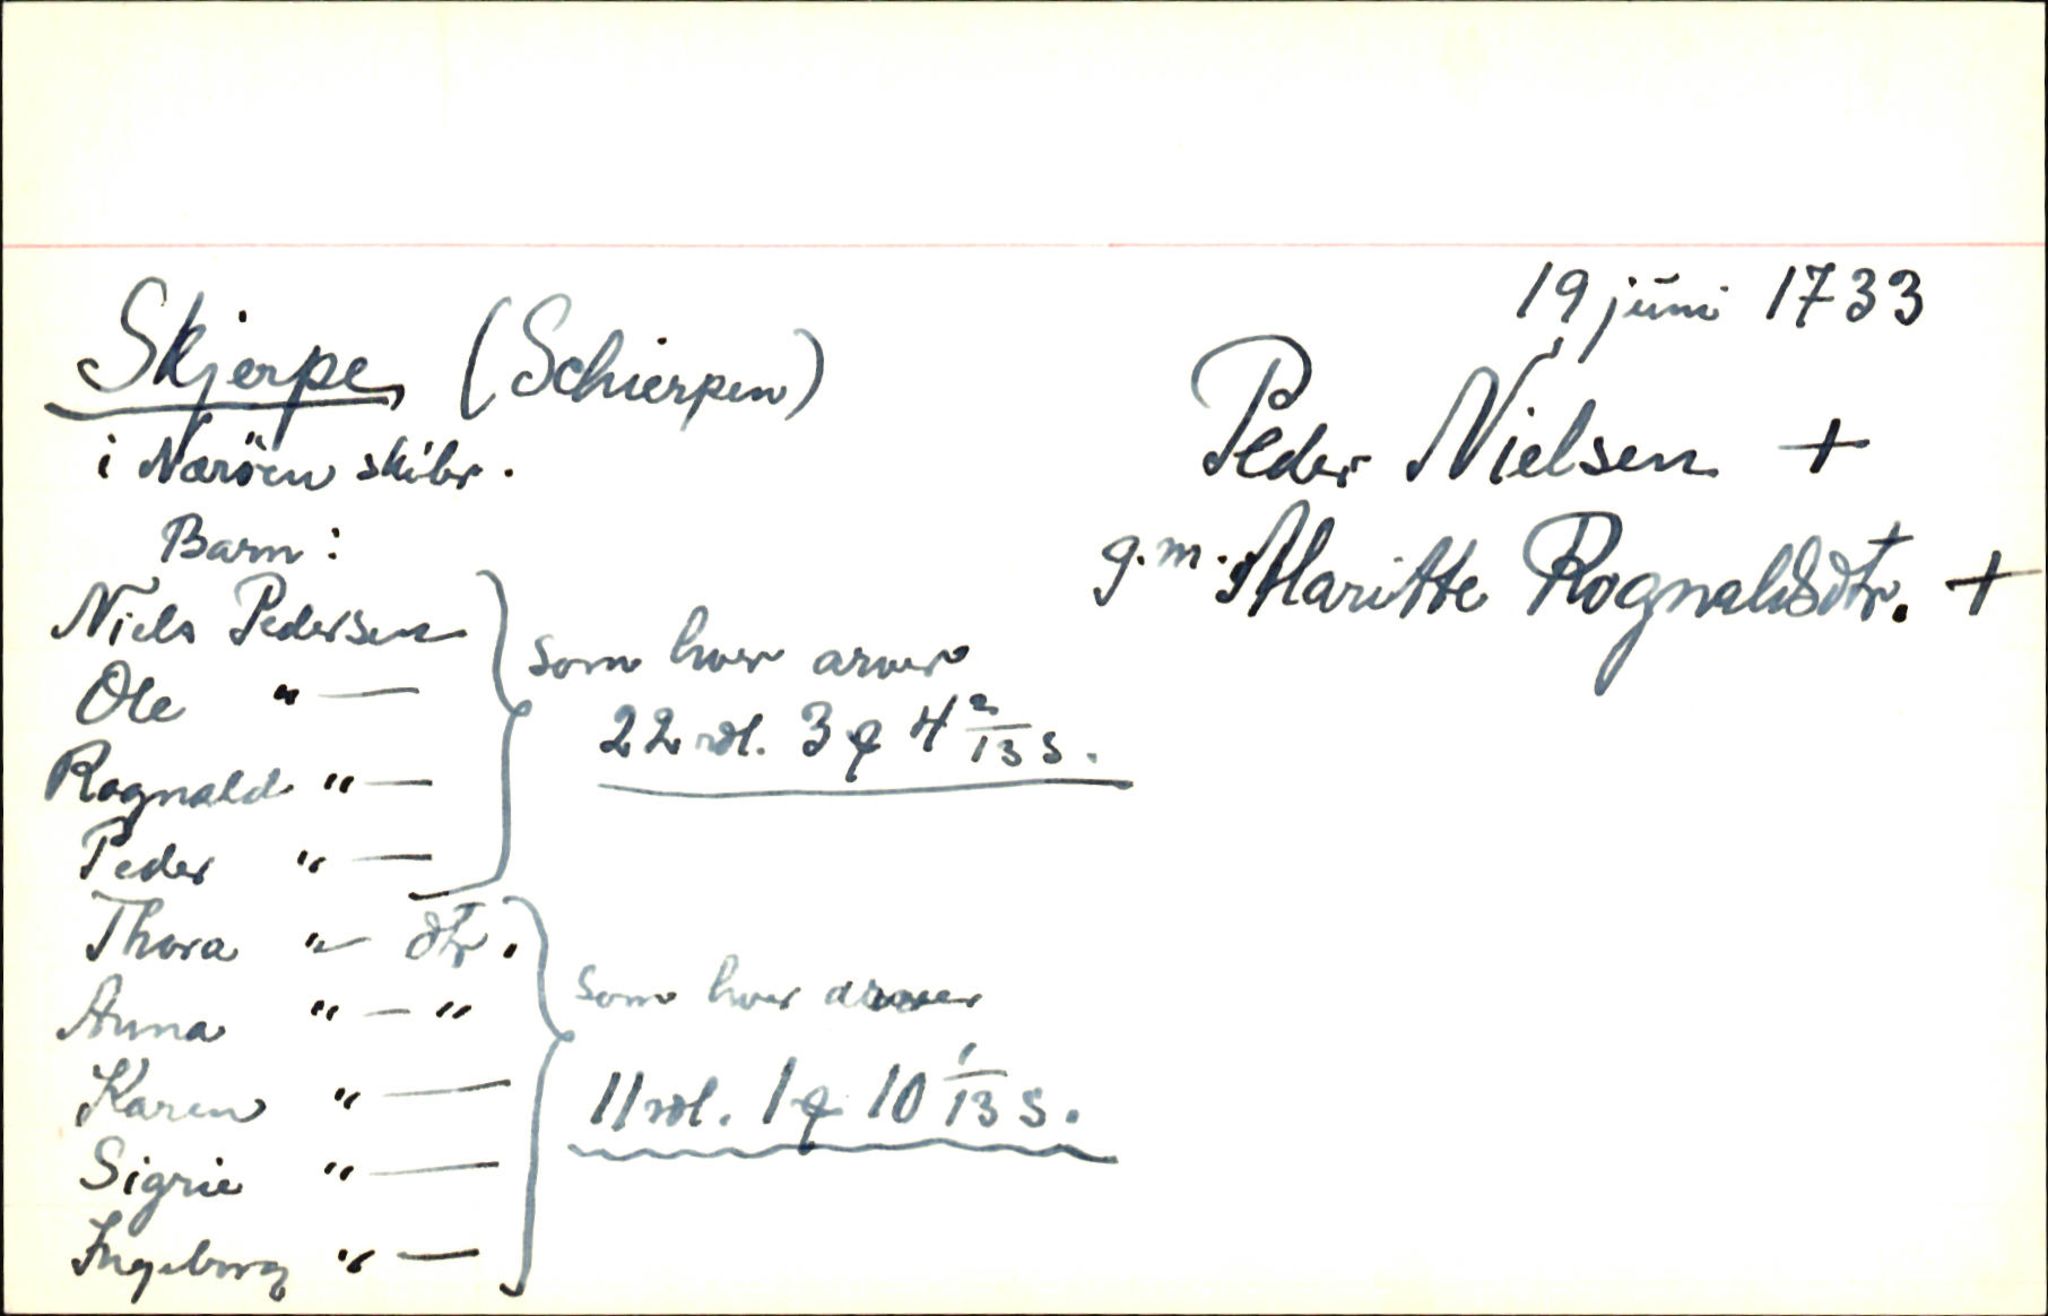 19 juni 1733
Skjerpe (Schierpen)
i Næröen skibr.
Peder Nielsen +
g.m. Maritte Rognaldsdtr. +
Barn:
Niels Pedersen
Ole " —
Rognald " —
Peder " —
som hver arver
22 rdl. 3 q 4 2/13 s.
Thora " — dtr.
Anna " — "
Karen " —
Sigrie " —
Ingeborg " —
som hver arver
11 rdl. 1 q 10 1/13 s.